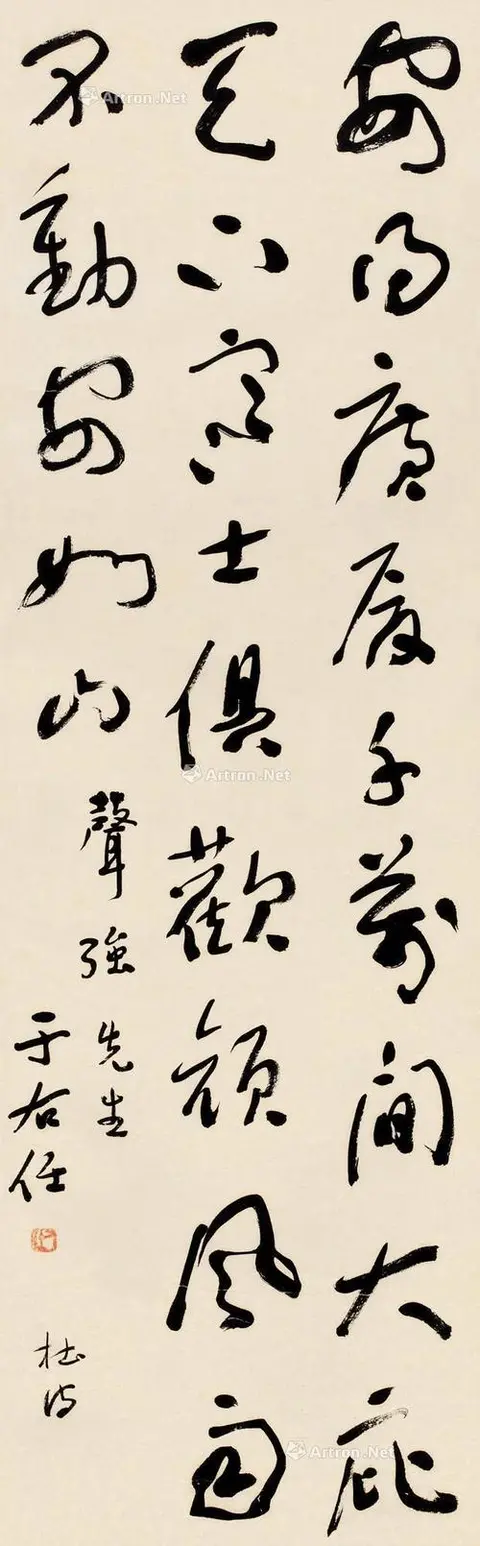 安得廣厦千萬間大庇
天下寒士俱歡顔風雨
不動安如山
聲強先生
于右任
杜詩
Artron.Net
Artron.Net
Artron.Net